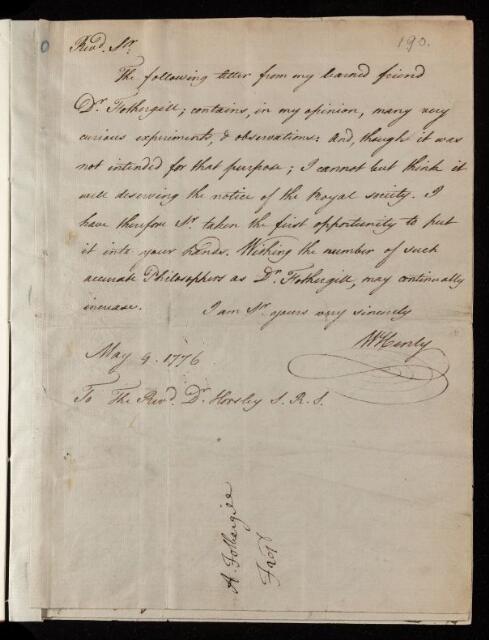 190.
Revd. Sr.
The following letter from my learned friend
Dr. Fothergill; contains, in my opinion, many very
curious experiments, & observations: And, though it was
not intended for that purpose; I cannot but think it
well deserving the notice of the Royal society. I
have therefore Sr. taken the first opportunity to put
it into your hands. Wishing the number of such
accurate Philosophers as Dr. Fothergill, may continually
increase.
I am Sr. yours very sincerely
WHenly
May 4. 1776
To The Revd. Dr. Horsley S. R. S.
A. Fothergill